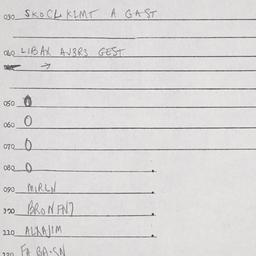 030 SKOCL KLMT A GAST
040 LIBAX AJ3R3 GEST
→
050 0
060 0
070 0
080 0
090 MIRLN
100 BRONFNJ
110 ALKAJIM
120 FA BA-SN